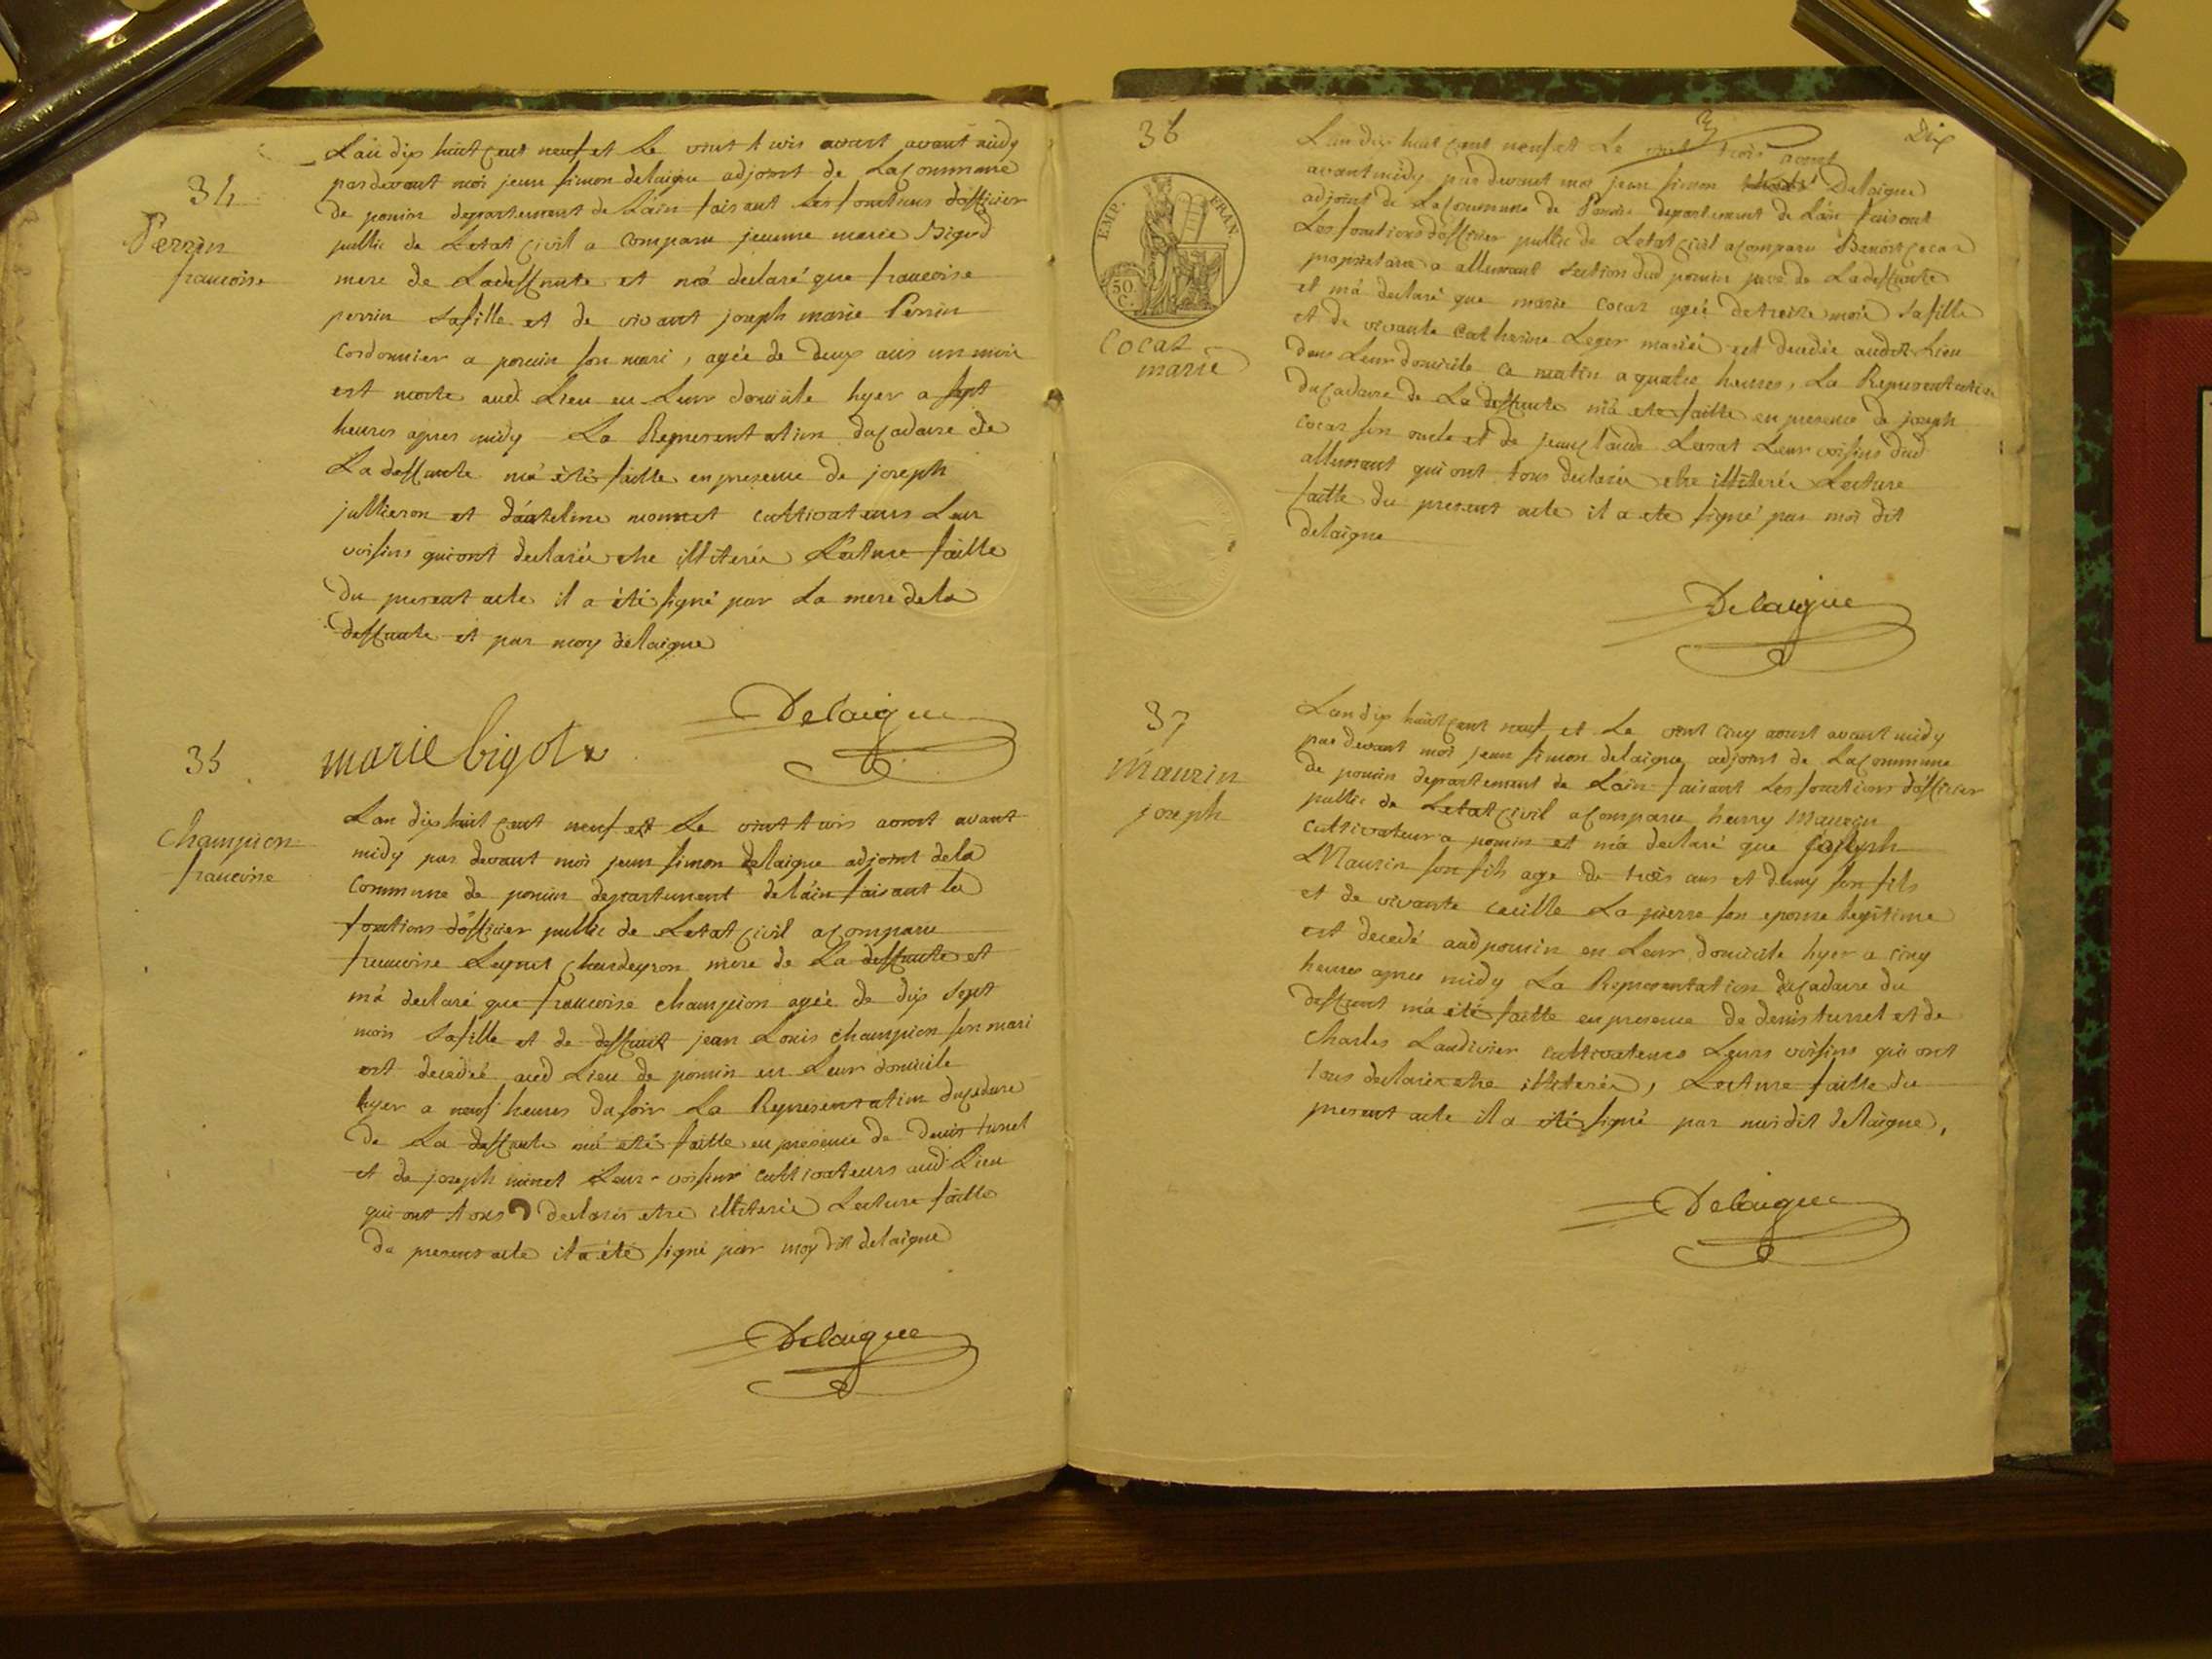 34
Perrin
francoise
Lan dix huit cent neuf et Le vint trois aoust avant midy
pardevant moi jean simon delaigue adjoint de La commune
de poncin departement de Lain faisant Les fonctions d'officier
public de Letat civil a comparu jeanne marie Bigod
mere de La deffunte et m'a declaré que francoise
perrin sa fille et de vivant joseph marie Perrin
cordonnier a poncin son mari, agée de deux ans un mois
est morte aud Lieu en Leur domicile hyer a sept
heures apres midy La Representation du cadavre de
La deffunte m'a été faitte en presence de joseph
jullieron et d'anteline monnet cultivateurs Leur
voisins qui ont declarés etre illiterés Lecture faitte
du present acte il a été signé par La mere de la
deffunte et par moy delaigue
Delaigue
marie bigot
35
Champion
francoise
Lan dix huit cent neuf et Le vint trois aoust avant
midy par devant moi jean simon delaigue adjoint de la
commune de poncin departement de lain faisant les
fonctions d'officier public de Letat civil a comparu
francoise Chardeyron mere de La deffunte et
m'a declaré que francoise champion agée de dix sept
mois sa fille et de deffunt jean Louis champion son mari
est decedée aud Lieu de poncin en Leur domicile
hyer a neuf heures du soir La Representation du cadavre
de La deffunte m'a été faitte en presence de denis turrel
et de joseph minet Leur voisins cultivateurs aud Lieu
qui ont tous declarés etre illiterés Lecture faitte
du present acte il a été signé par moy dit delaigue
Delaigue
Dix
36
EMP. FRAN.
50 C.
Cocaz
marie
Lan dix huit cent neuf et Le vint trois aoust
avant midy par devant moi jean simon Delaigue
adjoint de La commune de Poncin departement de Lain faisant
Les fonctions d'officier public de Letat civil a comparu Benoit cocaz
proprietaire a allement section dud poncin pere de La deffunte
et m'a declaré que marie cocaz agée de treize mois sa fille
et de vivante catherine Leger mariés est decedée audit Lieu
dans Leur domicile ce matin a quatre heures, La Representation
du cadavre de La deffunte m'a ete faitte en presence de joseph
cocaz son oncle et de jean claude Leurs voisins dud
allement qui ont tous declarés etre illiterés Lecture
faitte du present acte il a ete signé par moi dit
delaigue
Delaigue
37
Maurin
joseph
Lan dix huit cent neuf et Le vint cinq aoust avant midy
par devant moi jean simon delaigue adjoint de La commune
de poncin departement de Lain faisant Les fonctions d'officier
public de Letat civil a comparu henry Maurin
cultivateur a poncin et m'a declaré que joseph
Maurin son fils age de trois ans et demy son fils
et de vivante cecille La pierre son epouse legitime
est decedé aud poncin en Leur domicile hyer a cinq
heures apres midy La Representation du cadavre du
deffunt m'a été faitte en presence de denis turrel et de
Charles Laudivier cultivateurs Leurs voisins qui ont
tous declarés etre illiterés, Lecture faitte du
present acte il a été signé par moi dit delaigue,
Delaigue